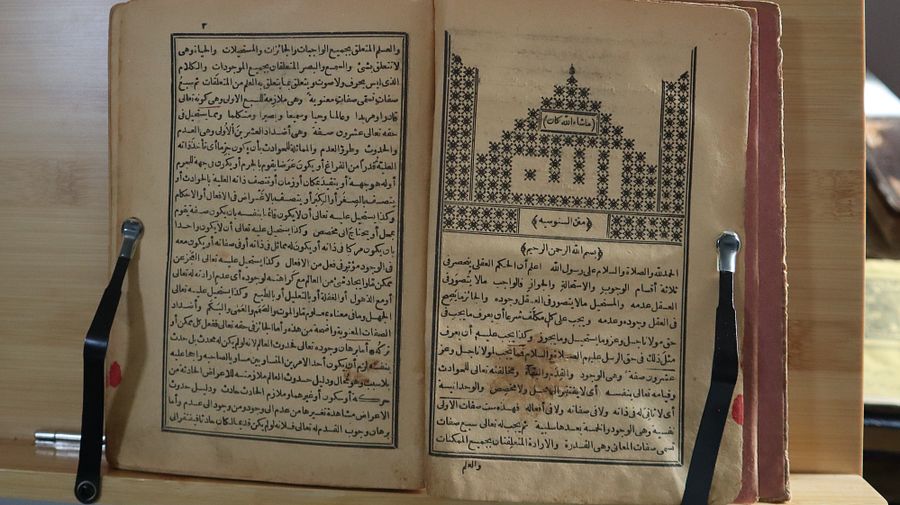 ماشاء الله كان
الله
متن السنوسيه
بسم الله الرحمن الرحيم
الحمد لله والصلاة والسلام على رسول الله اعلم أن الحكم العقلى ينحصر فى
ثلاثة أقسام الوجوب والاستحالة والجواز فالواجب مالا يتصور فى
العقل عدمه والمستحيل مالا يتصور فى العقل وجوده والجائز ما يصح
فى العقل وجوده وعدمه ويجب على كل مكلف شرعا أن يعرف ما يجب فى
حق مولانا جل وعز وما يستحيل وما يجوز وكذا يجب عليه أن يعرف
مثل ذلك فى حق الرسل عليهم الصلاة والسلام فمما يجب لمولانا جل وعز
عشرون صفة وهى الوجود والقدم والبقاء ومخالفته تعالى للحوادث
وقيامه تعالى بنفسه أى لا يفتقر الى محل ولا مخصص والوحدانية
أى لا ثانى له فى ذاته ولا فى صفاته ولا فى أفعاله فهذه ست صفات الاولى
نفسية وهى الوجود والخمسة بعدها سلبية ثم يجب له تعالى سبع صفات
تسمى صفات المعانى وهى القدرة والارادة المتعلقتان بجميع الممكنات
والعلم
٣
والعلم المتعلق بجميع الواجبات والجائزات والمستحيلات والحياة وهى
لا تتعلق بشئ والسمع والبصر المتعلقان بجميع الموجودات والكلام
الذى ليس بحرف ولا صوت ويتعلق بما يتعلق به العلم من المتعلقات ثم سبع
صفات تسمى صفات معنوية وهى ملازمة للسبع الاولى وهى كونه تعالى
قادرا ومريدا وعالما وحيا وسميعا وبصيرا ومتكلما ومما يستحيل فى
حقه تعالى عشرون صفة وهى أضداد العشرين الأولى وهى العدم
والحدوث وطرو العدم والمماثلة للحوادث بأن يكون جرما أى تأخذ ذاته
العلية قدرا من الفراغ أو يكون عرضا يقوم بالجرم أو يكون فى جهة للجرم
أو له هو جهة أو يتقيد بمكان أو زمان أو تتصف ذاته العلية بالحوادث أو
يتصف بالصغر أو الكبر أو يتصف بالأغراض فى الافعال أو الاحكام
وكذا يستحيل عليه تعالى أن لا يكون قائما بنفسه بأن يكون صفة يقوم
بمحل أو يحتاج الى مخصص وكذا يستحيل عليه تعالى أن لا يكون واحدا
بأن يكون مركبا فى ذاته أو يكون له مماثل فى ذاته أو فى صفاته أو يكون معه
فى الوجود مؤثر فى فعل من الافعال وكذا يستحيل عليه تعالى العجز عن
ممكن ما وايجاد شئ من العالم مع كراهته لوجوده أى عدم ارادته له تعالى
أو مع الذهول أو الغفلة أو بالتعليل أو بالطبع وكذا يستحيل عليه تعالى
الجهل وما فى معناه بمعلوم ما والموت والصمم والعمى والبكم وأضداد
الصفات المعنوية واضحة من هذه وأما الجائز فى حقه تعالى ففعل كل ممكن أو
تركه أما برهان وجوده تعالى فحدوث العالم لانه لو لم يكن له محدث بل حدث
بنفسه لزم أن يكون أحد الامرين المتساويين مساويا لصاحبه راجحا عليه
بلا سبب وهو محال ودليل حدوث العالم ملازمته للاعراض الحادثة من
حركة أو سكون أو غيرهما وملازم الحادث حادث ودليل حدوث
الاعراض مشاهدة تغيرها من عدم الى وجود ومن وجود الى عدم وأما
برهان وجوب القدم له تعالى فلانه لو لم يكن قديما لكان حادثا فيفتقر الى